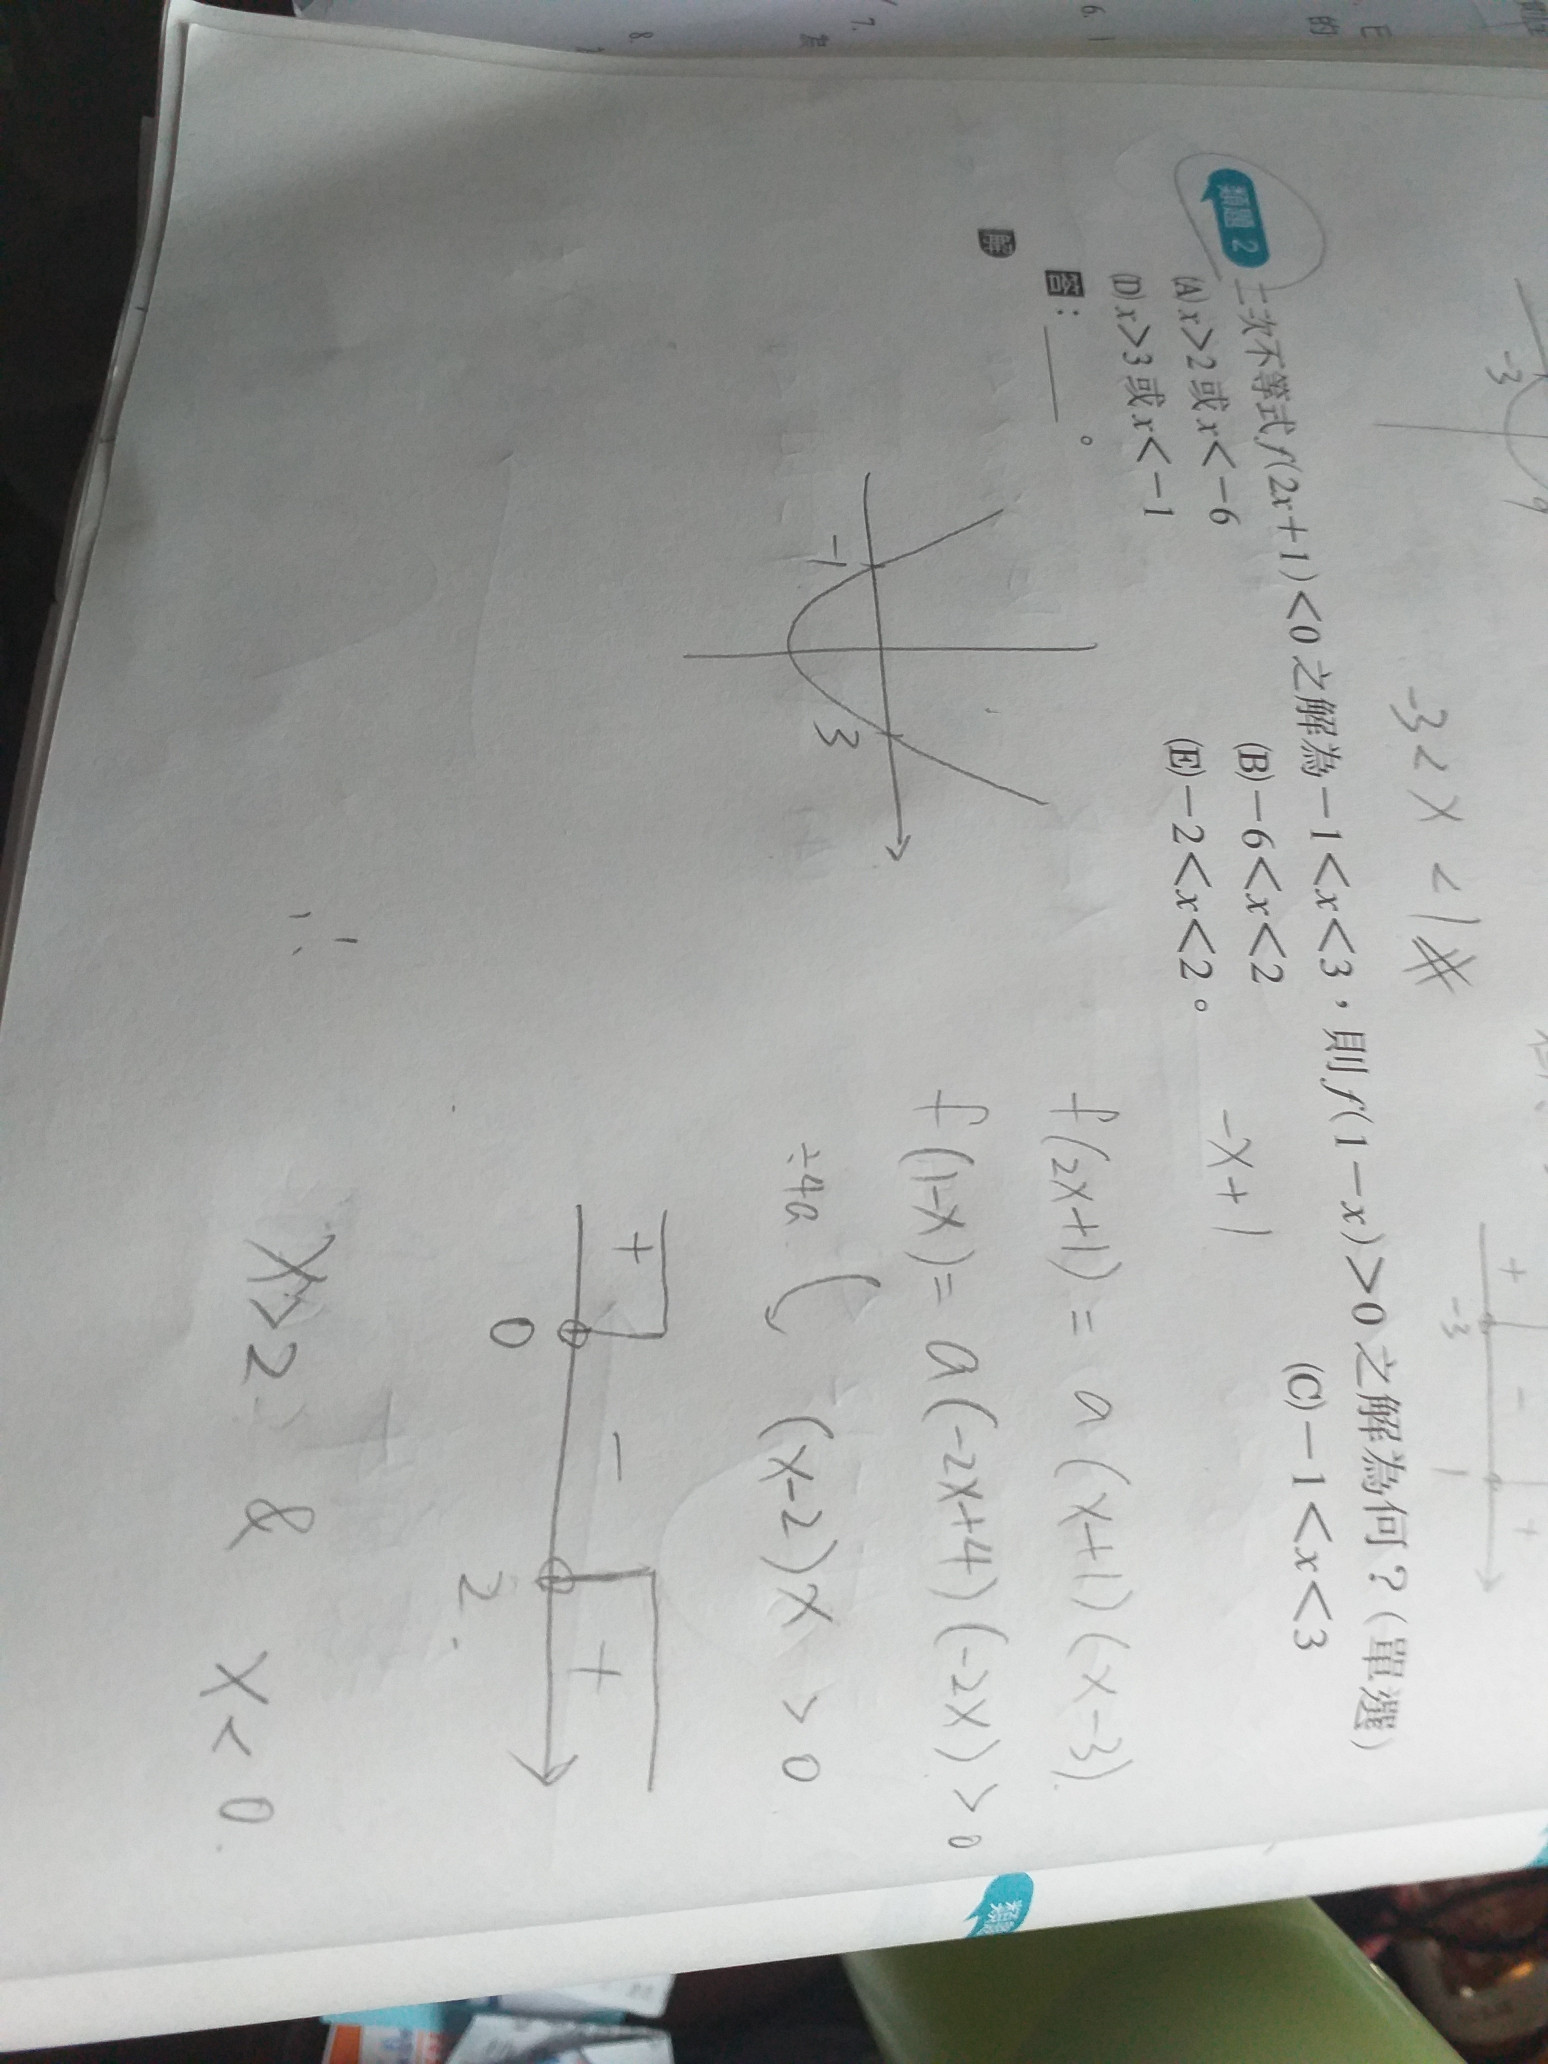 -3<x<1#
-3
+ - +
-3 1
類題 2 二次不等式 f(2x+1)<0 之解為 -1<x<3,則 f(1-x)>0 之解為何?(單選)
(A) x>2 或 x<-6 (B) -6<x<2 (C) -1<x<3
(D) x>3 或 x<-1 (E) -2<x<2。
-x+1
答:____。
解
-1 3
f(2x+1) = a(x+1)(x-3)
f(1-x) = a(-2x+4)(-2x)>0
÷4a (x-2)x > 0
+ - +
0 2
∴ x>2 & x<0
類題
6.
7.
8.
的